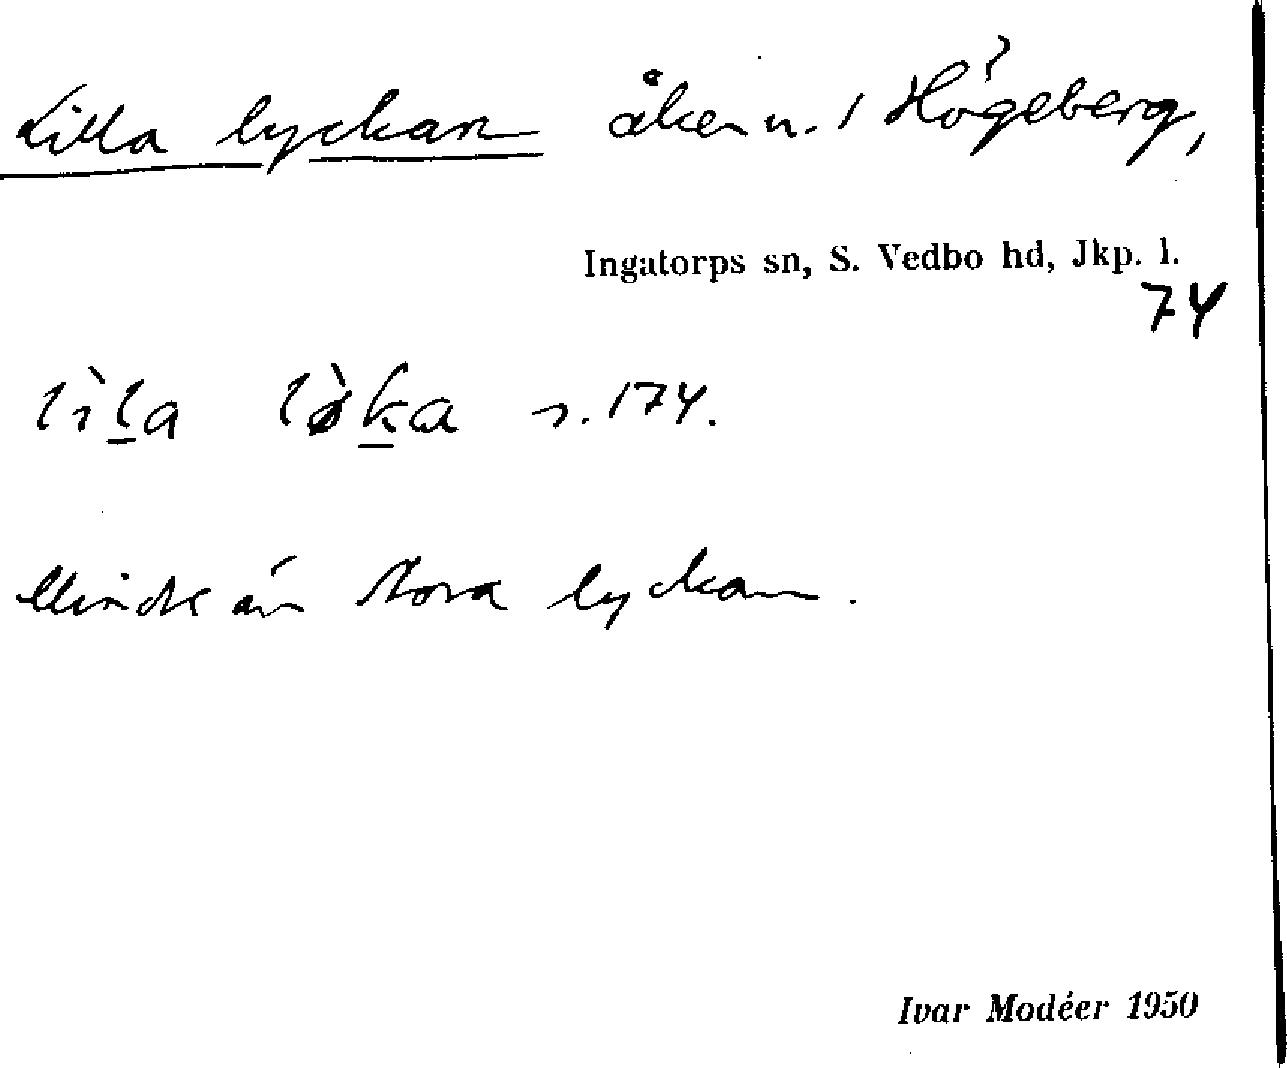 Lilla lyckan åker n. 1 Högeberg,
Ingatorps sn, S. Vedbo hd, Jkp. l.
74
lìl̲a lø̀k̲a s. 174.
Mindre än Stora lyckan.
Ivar Modéer 1950